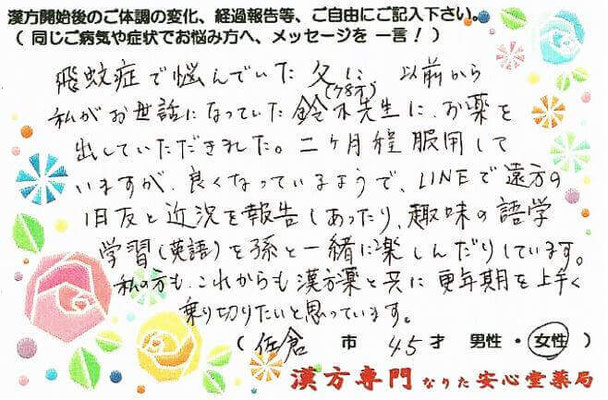 漢方開始後のご体調の変化、経過報告等、ご自由にご記入下さい。
（同じご病気や症状でお悩み方へ、メッセージを一言！）
飛蚊症で悩んでいた父に(78才)以前から
私がお世話になっていた鈴木先生に、お薬を
出していただきました。二ヶ月程服用して
いますが、良くなっているようで、LINEで遠方の
旧友と近況を報告しあったり、趣味の語学
学習(英語)を孫と一緒に楽しんだりしています。
私の方も、これからも漢方薬と共に更年期を上手く
乗り切りたいと思っています。
（佐倉 市 45才 男性・女性）
漢方専門 なりた安心堂薬局